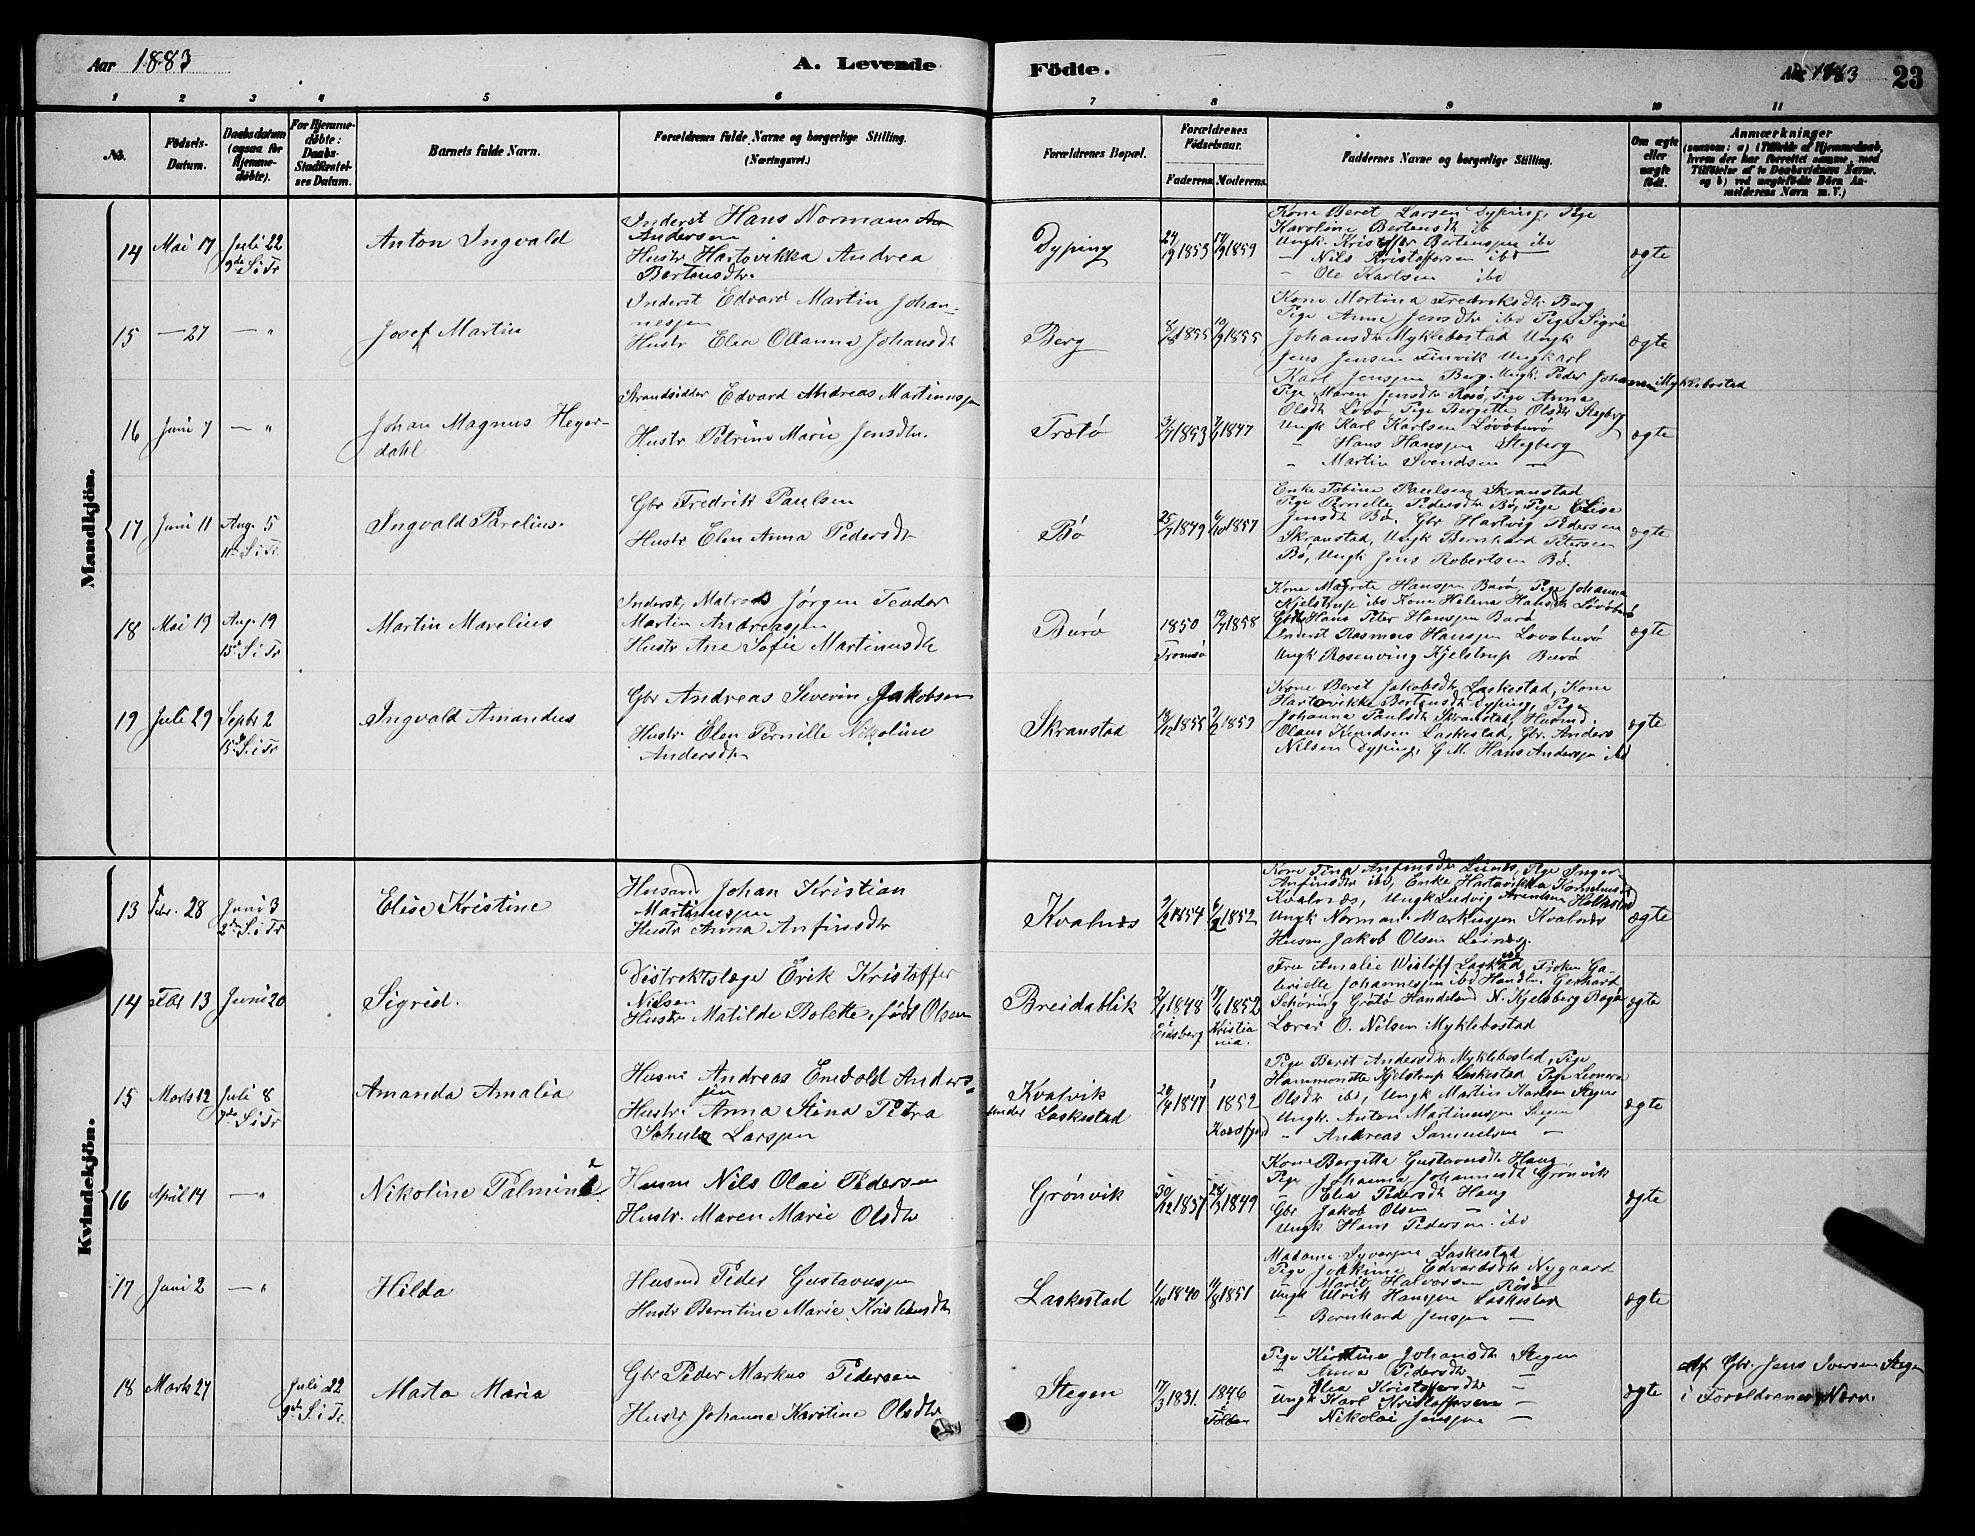 Aar 1883
A. Levende
Födte.
Aar 1883
23
1 2 3 4 5 6 7 8 9 10 11
No.
Födsels-Datum.
Daabsdatum (ogsaa for Hjemmedöbte).
For Hjemmedöbte: Daabs-Stadfæstelses Datum.
Barnets fulde Navn.
Forældrenes fulde Navne og borgerlige Stilling. (Næringsvei.)
Forældrenes Bopæl.
Forældrenes Födselsaar.
Faderens. Moderens.
Faddernes Navne og borgerlige Stilling.
Om ægte eller uægte födt.
Anmærkninger
(saasom: a) i Tilfælde af Hjemmedaab, hvem der har forrettet samme, med Tilföielse af to Daabsvidners Navne. og b) ved uægtefödte Börn Anmelderens Navn m. V.)
Mandkjön.
14 Mai 17 Juli 22
9de S. i Tr
Anton Ingvald
Inderst Hans Normann An
Andersen
Hustr Hartvikka Andrea
Bertensdtr.
Dyping
24/9 1853 17/9 1859
Kone Beret Larsen Dyping, Pige
Karoline Bertensdtr ib
Ungk. Kristoffer Bertenssen ibd
– Nils Kristoffersen ibd
– Ole Karlsen ibd
ægte
15 — 27 — "
Josef Martin
Inderst Edvard Martin Johan-
nessen
Hustr Elea Oleanna Johansdtr
Berg
8/8 1855 12/9 1855
Kone Martina Fredriksdtr Berg
Pige Anne Jensdtr ibd Pige Sigrie
Johansdtr Myklebostad Ungk
Jens Jensen Finvik Ungkarl
Karl Jenssen Berg. Ungk. Peder Johansen Myklebostad
ægte
16 Juni 7 — "
Johan Magnus Heyer-
dahl
Strandsidder Edvard Andreas Martinussen
Hustr Petrine Marie Jensdtr.
Trotö
3/7 1853 7/9 1847
Pige Maren Jensdtr Rosö, Pige Anna
Olsdtr Lovö, Pige Bergitte Olsdtr Stegberg
Ungk Karl Karlsen Lovöburö
" Hans Hanssen Stegberg
" Martin Svendsen —
ægte
17 Juni 11 Aug. 5
11te S. i Tr.
Ingvald Parelius.
Gbr Fredrik Paulsen
Hustr Elen Anna Pedersdtr
Bö
25/7 1849 6/10 1857
Enke Tobine Paulsen Skranstad
Pige Pernille Pedersdtr Bö, Pige Elise
Jensdtr Bö. Gbr Hartvig Pedersen
Skranstad, Ungk Bernhard Petersen
Bö, Ungk Jens Robertsen Bö.
ægte
18 Mai 19 Aug. 19
13 S i Tr
Martin Marelius
Inderst, Matros Jörgen Teodor
Martin Andreassen
Hustr Ane Sofie Martinusdtr
Burö
1850 Tromsö 19/7 1858
Kone Magrete Hanssen Burö, Pige Johanna
Kjelstrup ibd Kone Helena Hansdtr Lövöburö
Gbr Hans Peter Hanssen Burö
Inderst Rasmus Hanssen Lovöburö
Ungk Rosenving Kjelstrup Burö
ægte
19 Juli 29 Septbr 2
15de S. i Tr
Ingvald Amandus
Gbr Andreas Severin Jakobsen
Hustr Elen Pernille Nikoline
Andersdtr
Skranstad
19/12 1855 7/2 1859
Kone Beret Jakobsdtr Laskestad, Kone
Hartovikke Bertensdtr Dyping, Pige
Johanna Paulsdtr Skranstad, Husmd.
Olaus Knudsen Laskestad, Gbr. Anders
Nilsen Dyping, G. M. Hans Anderssen ibd
ægte
Kvindekjön.
13 Febr. 28 Juni 3
2den S. i Tr
Elise Kristine
Husmd Johan Kristian
Martinussen
Hustr Anna Anfinsdtr
Kvalnes
2/2 1854 6/2 1852
Kone Tina Anfinsdtr Leines, Pige Inger
Anfinsdtr ibd, Enke Hartvikka Korneliusdtr
Kvalnæs, Ungk Ludvig Arentsen Holkestad
Ungk Norman Markussen Kvalnæs
Husm Jakob Olsen Leines.
ægte
14 Febr 13 Juni 20
Sigrid.
Distriktslæge Erik Kristoffer
Nilsen
Hustr Matilde Bolette, födt Olsen
Breidablik
2/7 1848 i Eidsberg 19/6 1852 Kristiania.
Frue Amalie Wislöff Laskestad, Fröken Ga-
brielle Johannessen ibd Handlm. Gerhard
Schöning Grötö Handelsmd N. Kjelsberg Bogö
Lærer O. Nilsen Myklebostad
ægte
15 Marts 12 Juli 8
7de S. i Tr
Amanda Amalia
Husm Andreas Enevold Anders-
sen
Hustr. Anna Stina Petra
Schulz Larssen
Kvalvik
under Laskestad
20/4 1847 1852 Kvædfjord
Pige Beret Andersdtr Myklebostad, Pige
Hammonette Kjelstrup Laskestad Pige Leonora
Olsdtr ibd, Ungk Martin Karlsen Stegen
Ungk. Anton Martinussen Stegen
" Andreas Samuelsen —
ægte
16 April 14 — "
Nikoline Palmine
Husm Nils Olai Pedersen
Hustr. Maren Marie Olsdtr
Grönvik
30/12 1837 24/3 1849
Kone Bergitta Gustavsdtr Haug
Pige Johanna Johannesdtr Grönvik
" Elea Pedersdtr Haug
Gbr Jakob Olsen —
Ungk Hans Pedersen ibd
ægte
17 Juni 2 — "
Hilda
Husmd Peder Gustavussen
Hustr Berntine Marie Kristiansdtr
Laskestad
1/10 1840 11/8 1851
Madame Syversen Laskestad
Pige Joakime Edvardsdtr Nygaard
" Marit Halvorsen Rösö
Ungk Ulrik Hanssen Laskestad
" Bernhard Jenssen —
ægte
18 Marts 27 Juli 22
9de S. i Tr.
Marta Maria
Gbr Peder Markus Pedersen
Hustr Johanna Karstine Olsdtr
Stegen
17/3 1831. 1846 i Folden
Pige Kirstine Johansdtr Stegen
" Anna Pedersdtr —
" Elea Kristoffersdtr —
Ungk Karl Kristoffersen —
" Nikolai Jenssen —
ægte
Af Gbr. Jens Iversen Stegen
i Forældrenes Nærv.